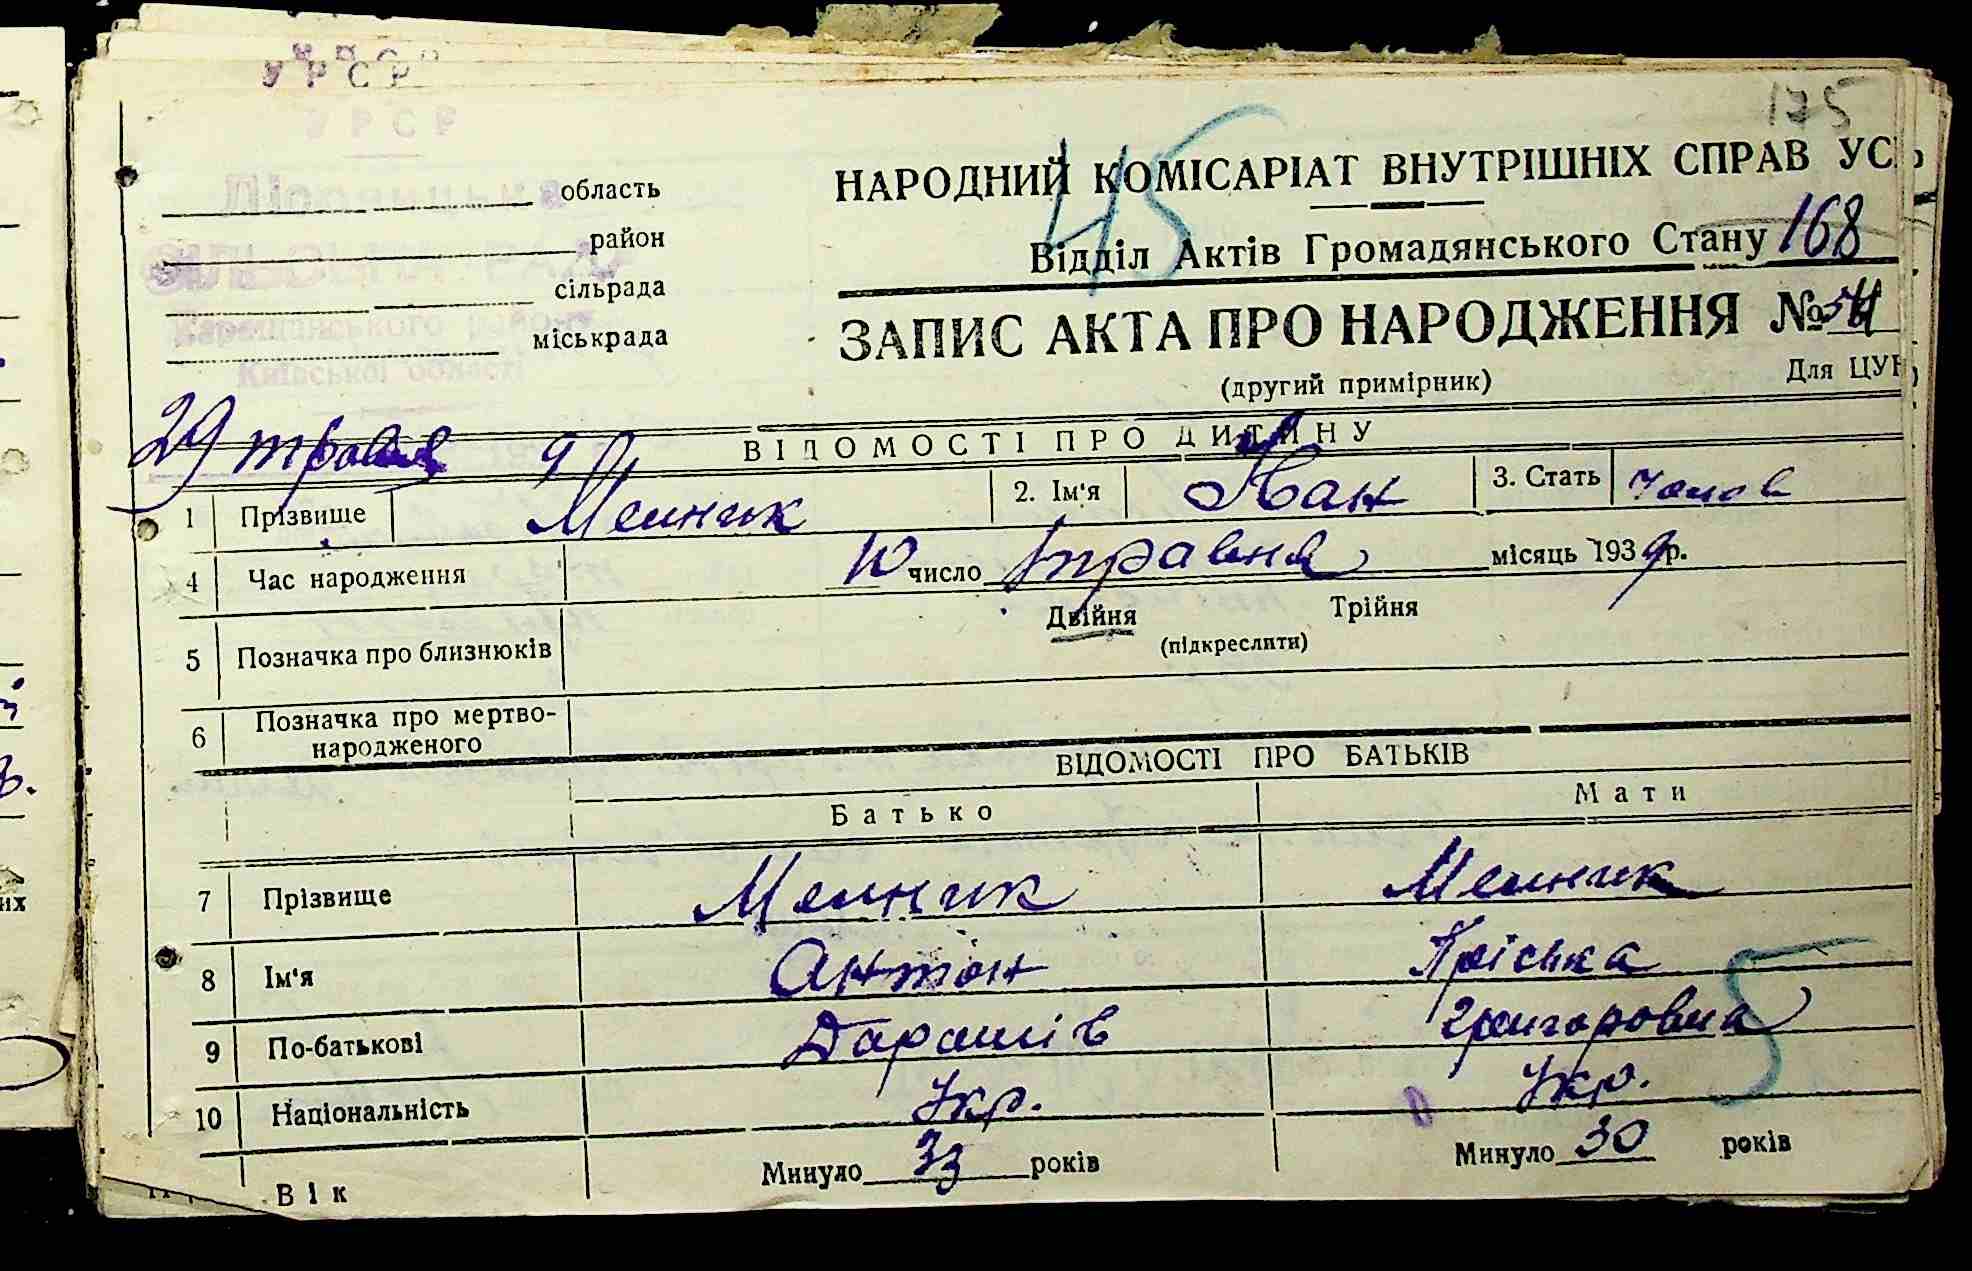 УРСР
УРСР
175
45
область
район
сільрада
міськрада
Київської області
НАРОДНИЙ КОМІСАРІАТ ВНУТРІШНІХ СПРАВ УС
Відділ Актів Громадянського Стану 168
ЗАПИС АКТА ПРО НАРОДЖЕННЯ № 54
(другий примірник)
Для ЦУН
29 травня 9
ВІДОМОСТІ ПРО ДИТИНУ
1 Прізвище Мелник 2. Ім'я Іван 3. Стать чолов
4 Час народження 10 число травня місяць 1939 р.
5 Позначка про близнюків Двійня Трійня
(підкреслити)
6 Позначка про мертво-
народженого
ВІДОМОСТІ ПРО БАТЬКІВ
Батько Мати
7 Прізвище Мелник Мелник
8 Ім'я Антон Пріська
9 По-батькові Григоровна
10 Національність Укр. Укр.
5
Вік Минуло 33 років Минуло 30 років
их